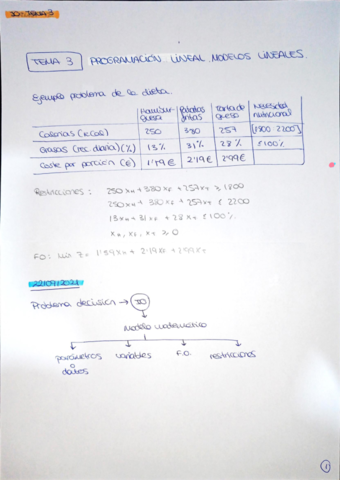 IO-TEMA 3
TEMA 3 PROGRAMACIÓN LINEAL. MODELOS LINEALES.
Ejemplo problema de la dieta.
Hambur- guesa Patatas fritas Tarta de queso Necesidad nutricional
Calorías (kcal) 250 380 257 [1800 2200]
Grasas (rec. diaria) (%) 13% 31% 28% ≤100%
Coste por porción (€) 1'19€ 2'19€ 2'99€
Restricciones: 250xH + 380xF + 257xT ≥ 1800
250xH + 380xF + 257xT ≤ 2200
13xH + 31xF + 28xT ≤ 100%
xH, xF, xT ≥ 0
F.O:
22/09/2021
Problema decisión → IO
Modelo matemático
parámetros o datos variables F.O. restricciones
1